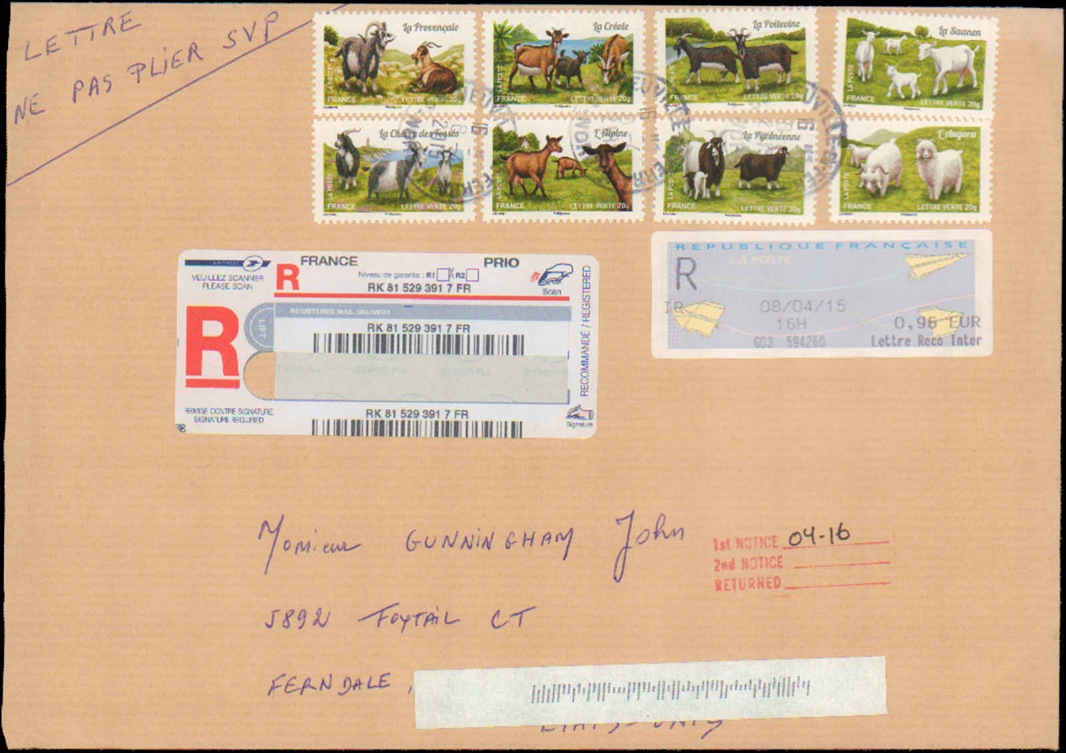 LETTRE
NE PAS PLIER SVP
La Provençale
LA POSTE
FRANCE LETTRE VERTE 20g
La Créole
LA POSTE
FRANCE LETTRE VERTE 20g
La Poitevine
LA POSTE
FRANCE LETTRE VERTE 20g
La Saanen
LA POSTE
FRANCE LETTRE VERTE 20g
La Chèvre des Fossés
LA POSTE
FRANCE LETTRE VERTE 20g
L'Alpine
LA POSTE
FRANCE LETTRE VERTE 20g
La Pyrénéenne
LA POSTE
FRANCE LETTRE VERTE 20g
L'Angora
LA POSTE
FRANCE LETTRE VERTE 20g
VEUILLEZ SCANNER
PLEASE SCAN
R FRANCE PRIO
Niveau de garantie : R1 R2
RK 81 529 391 7 FR
Scan
REGISTERED MAIL DELIVERY
LIFT
RK 81 529 391 7 FR
R
RECOMMANDÉ / REGISTERED
REMISE CONTRE SIGNATURE
SIGNATURE REQUIRED
RK 81 529 391 7 FR
Signature
REPUBLIQUE FRANÇAISE
LA POSTE
R
08/04/15
16H 0,96 EUR
G03 594260 Lettre Reco Inter
Monsieur GUNNINGHAM John
5892 FOXTAIL CT
FERNDALE,
ETATS-UNIS
1st NOTICE 04-16
2nd NOTICE
RETURNED